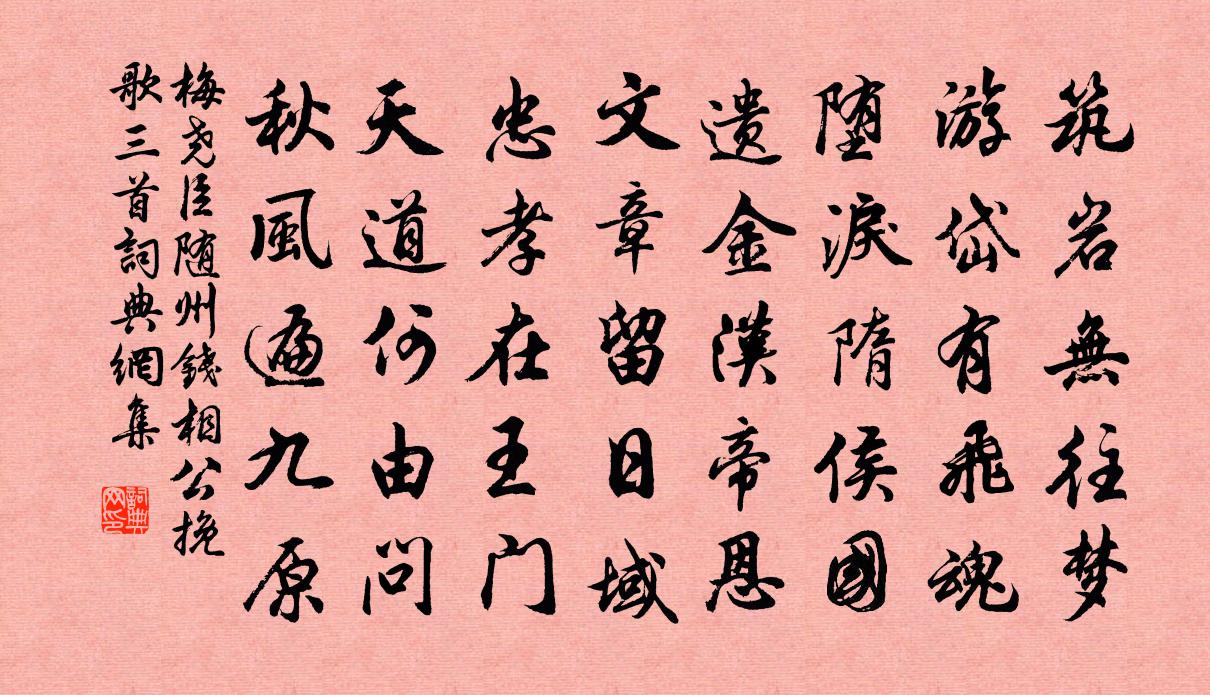 筑岩無往梦
游岱有飛魂
堕淚隋侯國
遗金漢帝恩
文章留日域
忠孝在王门
天道何由问
秋風遍九原
梅尧臣随州錢相公挽
歌三首詞典網集
詞典网印